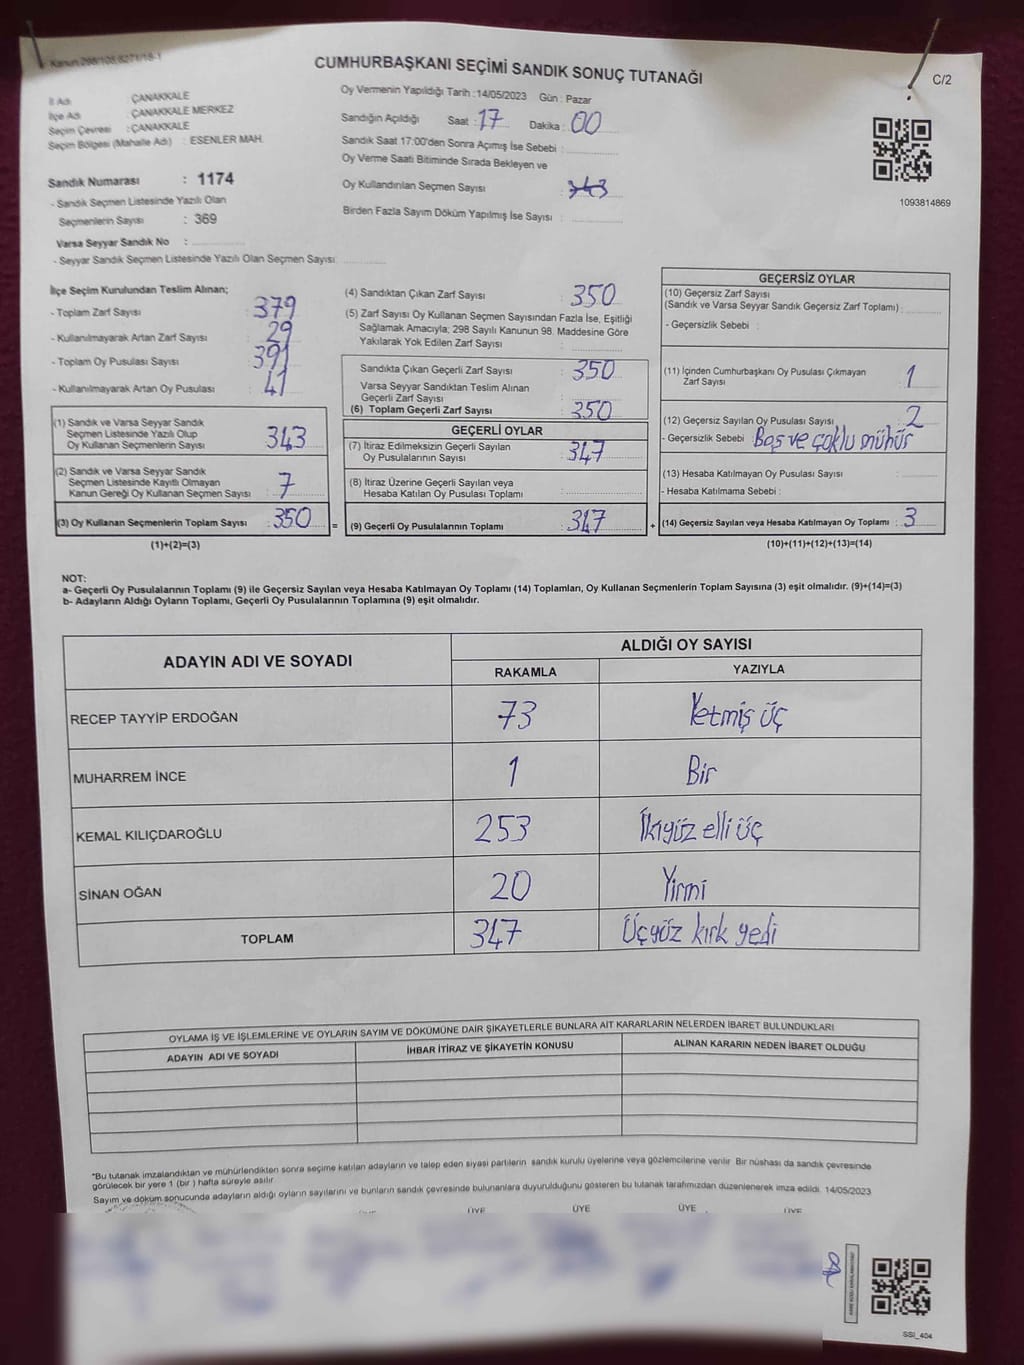 Kanun:298/105,6271/16-1
CUMHURBAŞKANI SEÇİMİ SANDIK SONUÇ TUTANAĞI
C/2
İl Adı : ÇANAKKALE
İlçe Adı : ÇANAKKALE MERKEZ
Seçim Çevresi : ÇANAKKALE
Seçim Bölgesi (Mahalle Adı) : ESENLER MAH.
Oy Vermenin Yapıldığı Tarih :14/05/2023 Gün : Pazar
Sandığın Açıldığı Saat : 17 Dakika : 00
Sandık Saat 17:00'den Sonra Açımış İse Sebebi :
Oy Verme Saati Bitiminde Sırada Bekleyen ve
Oy Kullandırılan Seçmen Sayısı : 343
Birden Fazla Sayım Döküm Yapılmış İse Sayısı :
1093814869
Sandık Numarası : 1174
- Sandık Seçmen Listesinde Yazılı Olan
Seçmenlerin Sayısı : 369
Varsa Seyyar Sandık No :
- Seyyar Sandık Seçmen Listesinde Yazılı Olan Seçmen Sayısı:
İlçe Seçim Kurulundan Teslim Alınan;
- Toplam Zarf Sayısı : 379
- Kullanılmayarak Artan Zarf Sayısı : 29
- Toplam Oy Pusulası Sayısı : 391
- Kullanılmayarak Artan Oy Pusulası : 41
(1) Sandık ve Varsa Seyyar Sandık
Seçmen Listesinde Yazılı Olup
Oy Kullanan Seçmenlerin Sayısı : 343
(2) Sandık ve Varsa Seyyar Sandık
Seçmen Listesinde Kayıtlı Olmayan
Kanun Gereği Oy Kullanan Seçmen Sayısı : 7
(3) Oy Kullanan Seçmenlerin Toplam Sayısı : 350 =
(1)+(2)=(3)
(4) Sandıktan Çıkan Zarf Sayısı : 350
(5) Zarf Sayısı Oy Kullanan Seçmen Sayısından Fazla İse, Eşitliği
Sağlamak Amacıyla; 298 Sayılı Kanunun 98. Maddesine Göre
Yakılarak Yok Edilen Zarf Sayısı :
Sandıkta Çıkan Geçerli Zarf Sayısı : 350
Varsa Seyyar Sandıktan Teslim Alınan
Geçerli Zarf Sayısı :
(6) Toplam Geçerli Zarf Sayısı : 350
GEÇERLİ OYLAR
(7) İtiraz Edilmeksizin Geçerli Sayılan
Oy Pusulalarının Sayısı : 347
(8) İtiraz Üzerine Geçerli Sayılan veya
Hesaba Katılan Oy Pusulası Toplamı :
(9) Geçerli Oy Pusulalarının Toplamı : 347 +
GEÇERSİZ OYLAR
(10) Geçersiz Zarf Sayısı
(Sandık ve Varsa Seyyar Sandık Geçersiz Zarf Toplamı) :
- Geçersizlik Sebebi :
(11) İçinden Cumhurbaşkanı Oy Pusulası Çıkmayan
Zarf Sayısı : 1
(12) Geçersiz Sayılan Oy Pusulası Sayısı : 2
- Geçersizlik Sebebi : Boş ve çoklu mühür
(13) Hesaba Katılmayan Oy Pusulası Sayısı :
- Hesaba Katılmama Sebebi :
(14) Geçersiz Sayılan veya Hesaba Katılmayan Oy Toplamı : 3
(10)+(11)+(12)+(13)=(14)
NOT:
a- Geçerli Oy Pusulalarının Toplamı (9) ile Geçersiz Sayılan veya Hesaba Katılmayan Oy Toplamı (14) Toplamları, Oy Kullanan Seçmenlerin Toplam Sayısına (3) eşit olmalıdır. (9)+(14)=(3)
b- Adayların Aldığı Oyların Toplamı, Geçerli Oy Pusulalarının Toplamına (9) eşit olmalıdır.
ADAYIN ADI VE SOYADI
ALDIĞI OY SAYISI
RAKAMLA YAZIYLA
RECEP TAYYİP ERDOĞAN 73 Yetmiş üç
MUHARREM İNCE 1 Bir
KEMAL KILIÇDAROĞLU 253 İkiyüz elli üç
SİNAN OĞAN 20 Yirmi
TOPLAM 347 Üçyüz kırk yedi
OYLAMA İŞ VE İŞLEMLERİNE VE OYLARIN SAYIM VE DÖKÜMÜNE DAİR ŞİKAYETLERLE BUNLARA AİT KARARLARIN NELERDEN İBARET BULUNDUKLARI
ADAYIN ADI VE SOYADI İHBAR İTİRAZ VE ŞİKAYETİN KONUSU ALINAN KARARIN NEDEN İBARET OLDUĞU
*Bu tutanak imzalandıktan ve mühürlendikten sonra seçime katılan adayların ve talep eden siyasi partilerin sandık kurulu üyelerine veya gözlemcilerine verilir. Bir nüshası da sandık çevresinde
görülecek bir yere 1 (bir ) hafta süreyle asılır.
Sayım ve döküm sonucunda adayların aldığı oyların sayılarını ve bunların sandık çevresinde bulunanlara duyurulduğunu gösteren bu tutanak tarafımızdan düzenlenerek imza edildi. 14/05/2023
ÜYE ÜYE ÜYE ÜYE
SSI_404